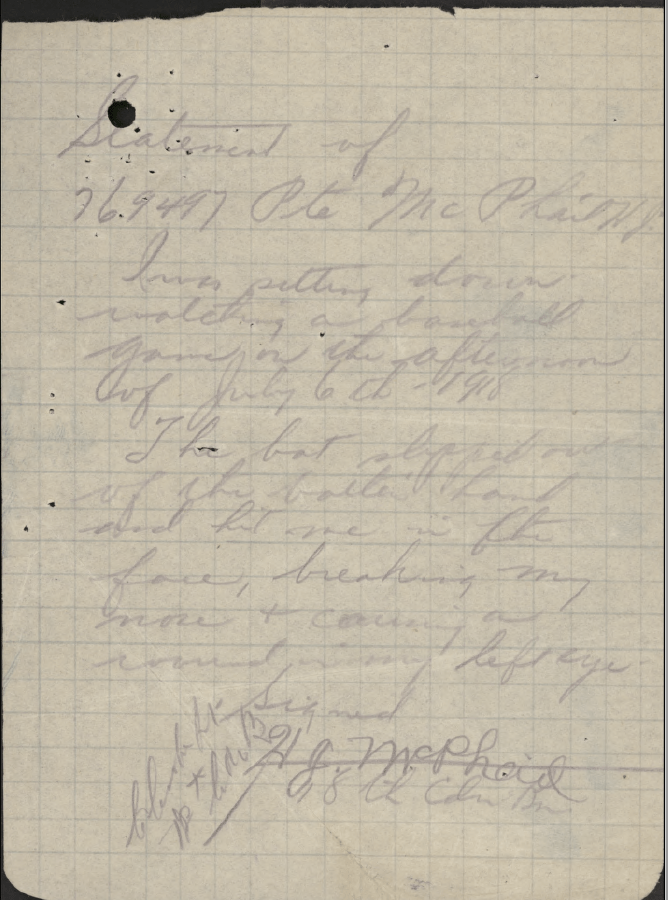 Statement of
769497 Pte McPhail H.J.
I was sitting down
watching a baseball
game on the afternoon
of July 6th - 1918
The bat slipped out
of the batter hand
and hit me in the
face, breaking my
nose + causing a
wound in my left eye
Signed
H J. McPhail
Cdn Bn